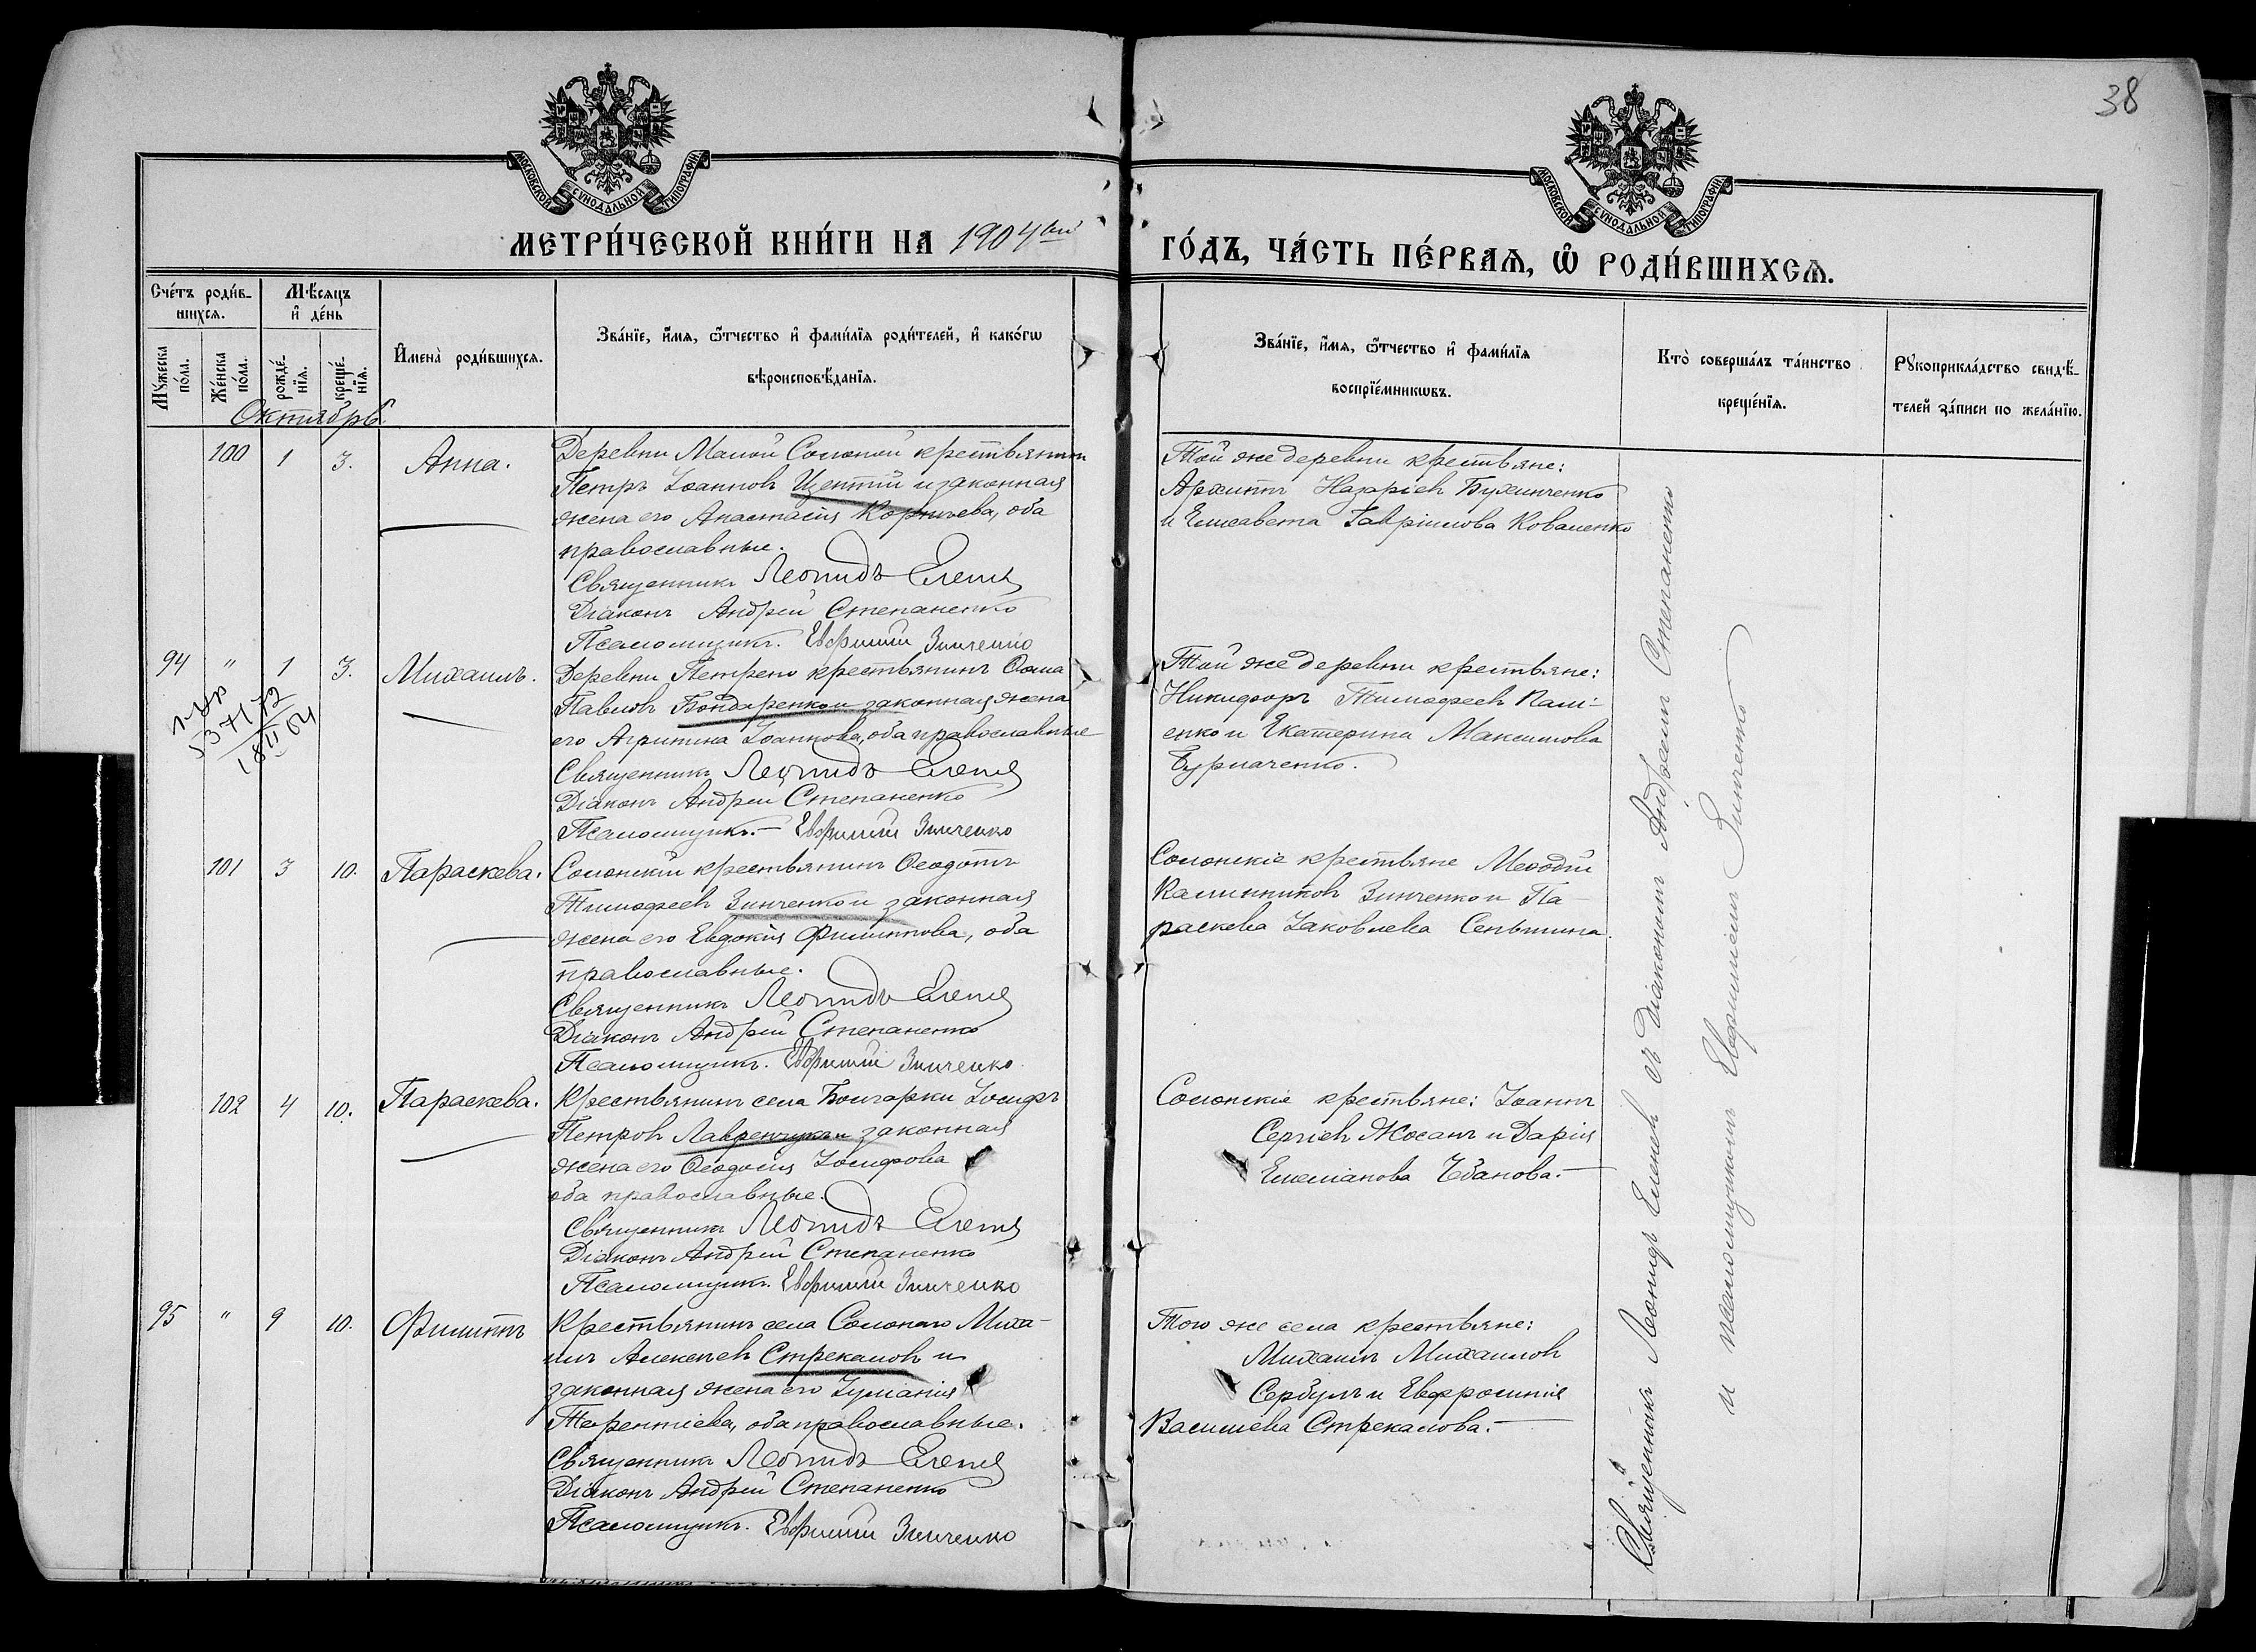 38
МОСКОВСКОЙ СУНОДАЛЬНОЙ ТИПОГРАФІИ
МОСКОВСКОЙ СУНОДАЛЬНОЙ ТИПОГРАФІИ
МЕТРИ́ЧЕСКОЙ КНИ́ГИ НА 1904ый
ГО́ДЪ, ЧА́СТЬ ПЕ́РВАѦ, Ѡ҆ РОДИ́ВШИХСѦ.
Сче́тъ роди́в-
шихсѧ.
Мѣ́сяцъ
и҆ де́нь
Мꙋ́жеска
по́ла.
Же́нска
по́ла.
рожде́-
нїѧ.
креще́-
нїѧ.
И҆мена̀ роди́вшихсѧ.
Зва́нїе, и҆́мѧ, ѻ҆́тчество и҆ фами́лїѧ роди́телей, и҆ како́гѡ
вѣроисповѣ́данїѧ.
Зва́нїе, и҆́мѧ, ѻ҆́тчество и҆ фами́лїѧ
воспрїе́мникѡвъ.
Кто̀ соверша́лъ та́инство
креще́нїѧ.
Рꙋкоприкла́дство свидѣ́-
телей за́писи по жела́нїю.
Октябрь
100 1 3. Анна.
Деревни Малой Солоной крестьянин
Петръ Іоанновъ и законная
жена его Анастасія Корниева, оба
православные.
Священникъ Леонидъ Еленев
Діаконъ Андрей Степаненко
Псаломщикъ. Евфимій Зинченко
Той же деревни крестьяне:
Архиппъ Назаріевъ Бухинченко
и Елисавета Гавріилова Коваленко
94 " 1 3. Михаилъ.
537172
18 II 64
Деревни Петрено крестьянинъ Ѳома
Павловъ Бондаренко и законная жена
его Агрипина Іоаннова, оба православные
Священникъ Леонидъ Еленев
Діаконъ Андрей Степаненко
Псаломщикъ. – Евфимій Зинченко
Той же деревни крестьяне:
Никифоръ Тимофеевъ Каш-
енко и Екатерина Максимова
Бурлаченко.
101 3 10. Параскева.
Солонскій крестьянинъ Ѳеодотъ
Тимофеевъ Зинченко и законная
жена его Евдокія Филиппова, оба
православные.
Священникъ Леонидъ Еленев
Діаконъ Андрей Степаненко
Псаломщикъ. Евфимій Зинченко
Солонскіе крестьяне Меѳодій
Калинниковъ Зинченко и Па-
раскева Іаковлева Сеньшина.
102 4 10. Параскева.
Крестьянинъ села Болгарки Іосифъ
Петровъ Лавренчукъ и законная
жена его Ѳеодосія Іосифова
оба православные.
Священникъ Леонидъ Еленев
Діаконъ Андрей Степаненко
Псаломщикъ. Евфимій Зинченко
Солонскіе крестьяне: Іоаннъ
Сергіевъ Жосанъ и Дарія
Емеліанова Чбанова. –
95 " 9 10. Филиппъ
Крестьянинъ села Солонаго Миха-
илъ Алексеевъ Стрекаловъ и
законная жена его Іуліанія
Терентіева, оба православные.
Священникъ Леонидъ Еленев
Діаконъ Андрей Степаненко
Псаломщикъ. Евфимій Зинченко
Того же села крестьяне:
Михаилъ Михаиловъ
Сербулъ и Евфросинія
Василиева Стрекалова. –
Священникъ Леонидъ Еленевъ съ Діакономъ Андреемъ Степаненко
и псаломщикомъ Евфиміемъ Зинченко